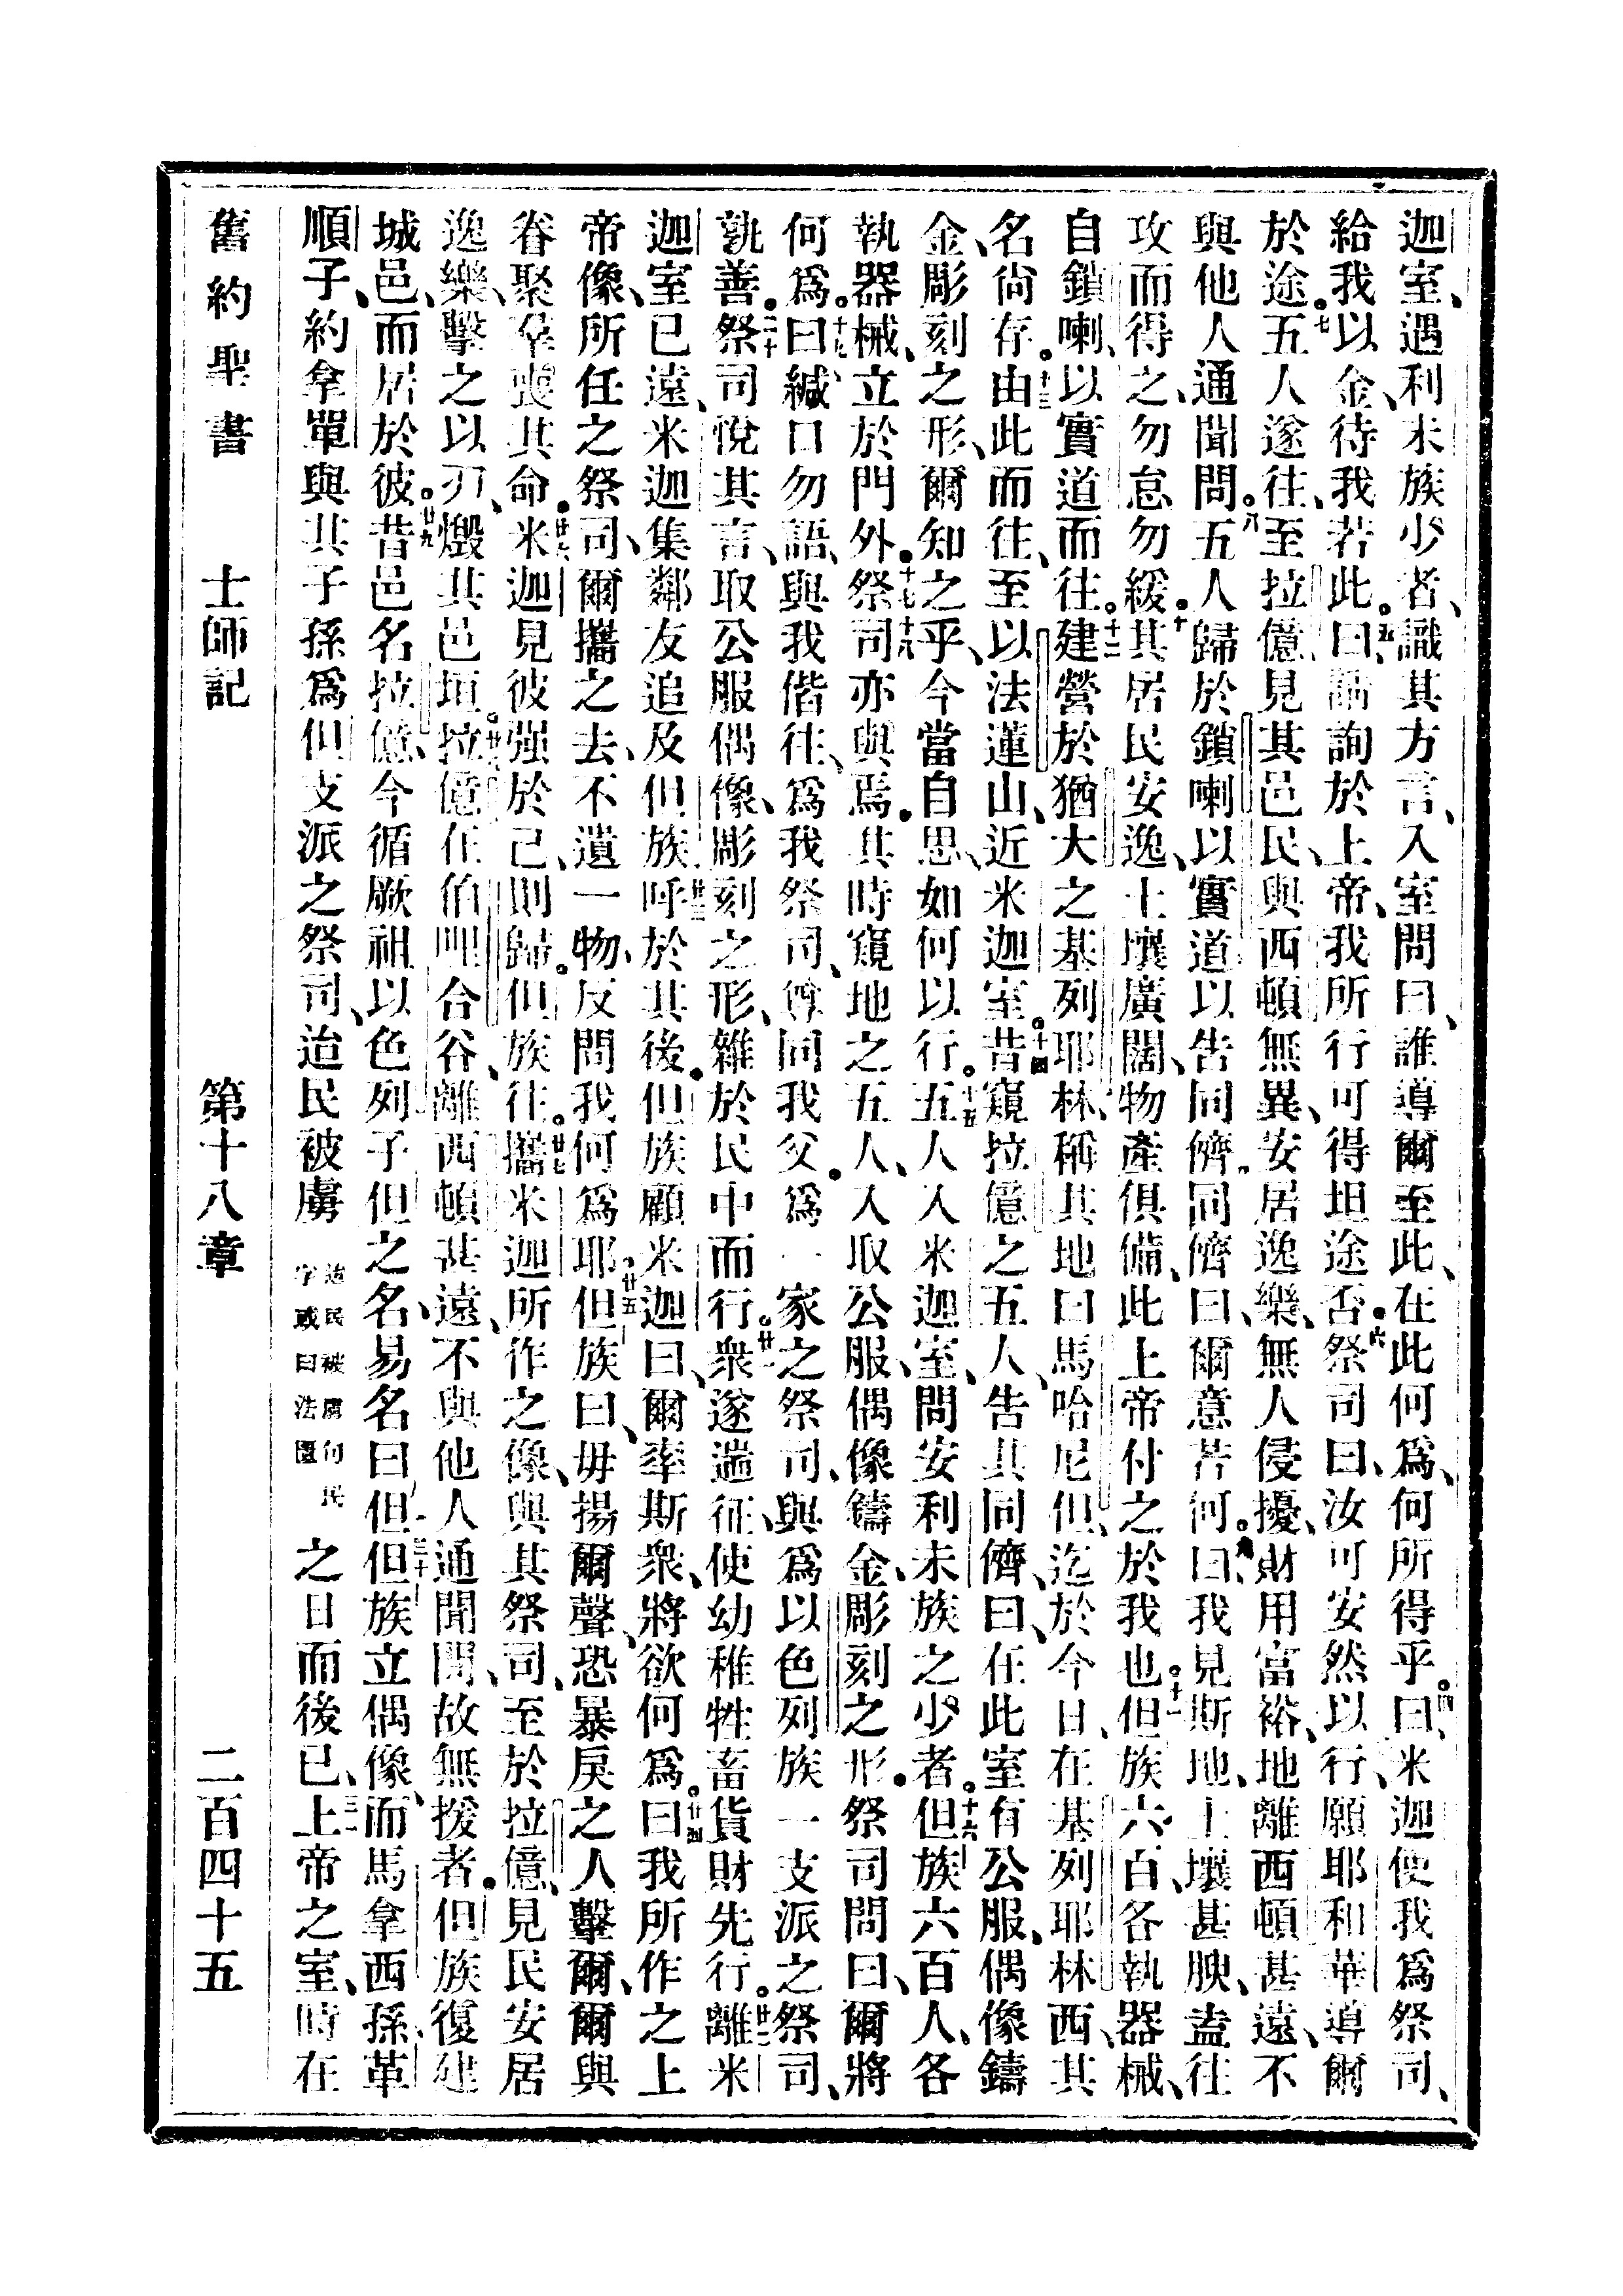 迦室、遇利未族少者、識其方言、入室問曰、誰導爾至此、在此何爲、何所得乎。四曰、米迦使我爲祭司、
給我以金、待我若此。五曰、請詢於上帝、我所行可得坦途否。六祭司曰、汝可安然以行、願耶和華導爾
於途。七五人遂往、至拉億、見其邑民、與西頓無異、安居逸樂、無人侵擾、財用富裕、地離西頓甚遠、不
與他人通聞問。八五人歸於鎖喇以實道、以告同儕。同儕曰、爾意若何。九曰、我見斯地、土壤甚腴、盍往
攻而得之、勿怠勿緩。十其居民安逸、土壤廣闊、物產俱備、此上帝付之於我也。十一但族六百、各執器械、
自鎖喇、以實道而往。十二建營於猶大之基列耶林、稱其地曰馬哈尼但、迄於今日、在基列耶林西、其
名尚存。十三由此而往、至以法蓮山、近米迦室。十四昔窺拉億之五人、告其同儕曰、在此室有公服、偶像鑄
金、彫刻之形、爾知之乎、今當自思、如何以行。十五五人入米迦室、問安利未族之少者。十六但族六百人、各
執器械、立於門外。十七十八祭司亦與焉。其時窺地之五人、入取公服、偶像鑄金、彫刻之形。祭司問曰、爾將
何爲。十九曰、緘口勿語、與我偕往、爲我祭司、尊同我父。爲一家之祭司、與爲以色列族一支派之祭司、
孰善。二十祭司悅其言、取公服偶像、彫刻之形、雜於民中而行。廿一衆遂遄征、使幼稚牲畜貨財先行。廿二離米
迦室已遠、米迦集鄰友追及但族、廿三呼於其後。但族顧米迦曰、爾率斯衆、將欲何爲。廿四曰、我所作之上
帝像、所任之祭司、爾攜之去、不遺一物、反問我何爲耶。廿五但族曰、毋揚爾聲、恐暴戾之人擊爾、爾與
眷聚羣喪其命。廿六米迦見彼强於己、則歸。但族往。廿七攜米迦所作之像、與其祭司、至於拉億、見民安居
逸樂、擊之以刃、燬其邑垣。廿八拉億在伯哩合谷、離西頓甚遠、不與他人通聞問、故無援者。但族復建
城邑、而居於彼。廿九昔邑名拉億、今循厥祖以色列子但之名、易名曰但。三十但族立偶像、而馬拿西孫、革
順子、約拿單與其子孫爲但支派之祭司、迨民被虜迨民被虜句民字或曰法匱之日而後已。三一上帝之室、時在
舊約聖書 士師記 第十八章 二百四十五